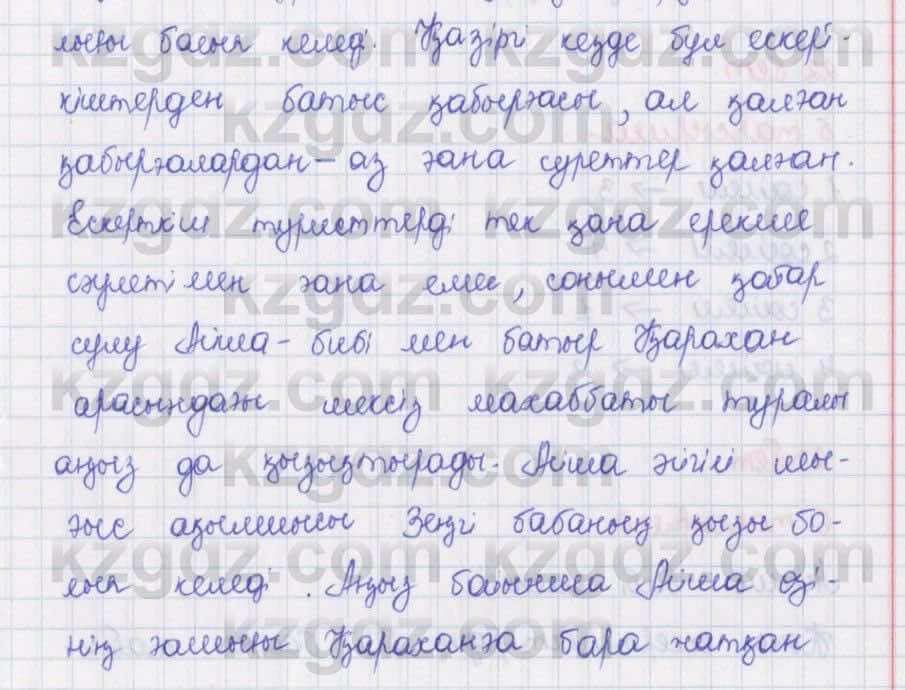 лығы болып келеді. Қазіргі кезде бұл ескерт-
кіштерден батыс қабырғасы, ал қалған
қабырғалардан – аз ғана суреттер қалған.
Ескерткіш туристтерді тек қана ерекше
сәулетімен ғана емес, сонымен қатар
сұлу Айша-бибі мен батыр Қарахан
арасындағы шексіз махаббаты туралы
аңыз да қызықтырады. Айша әйгілі шы-
ғыс ақылшысы Зеңгі бабаның қызы бо-
лып келеді. Аңыз бойынша Айша өзі-
нің ғашығы Қараханға бара жатқан
kzgdz.com